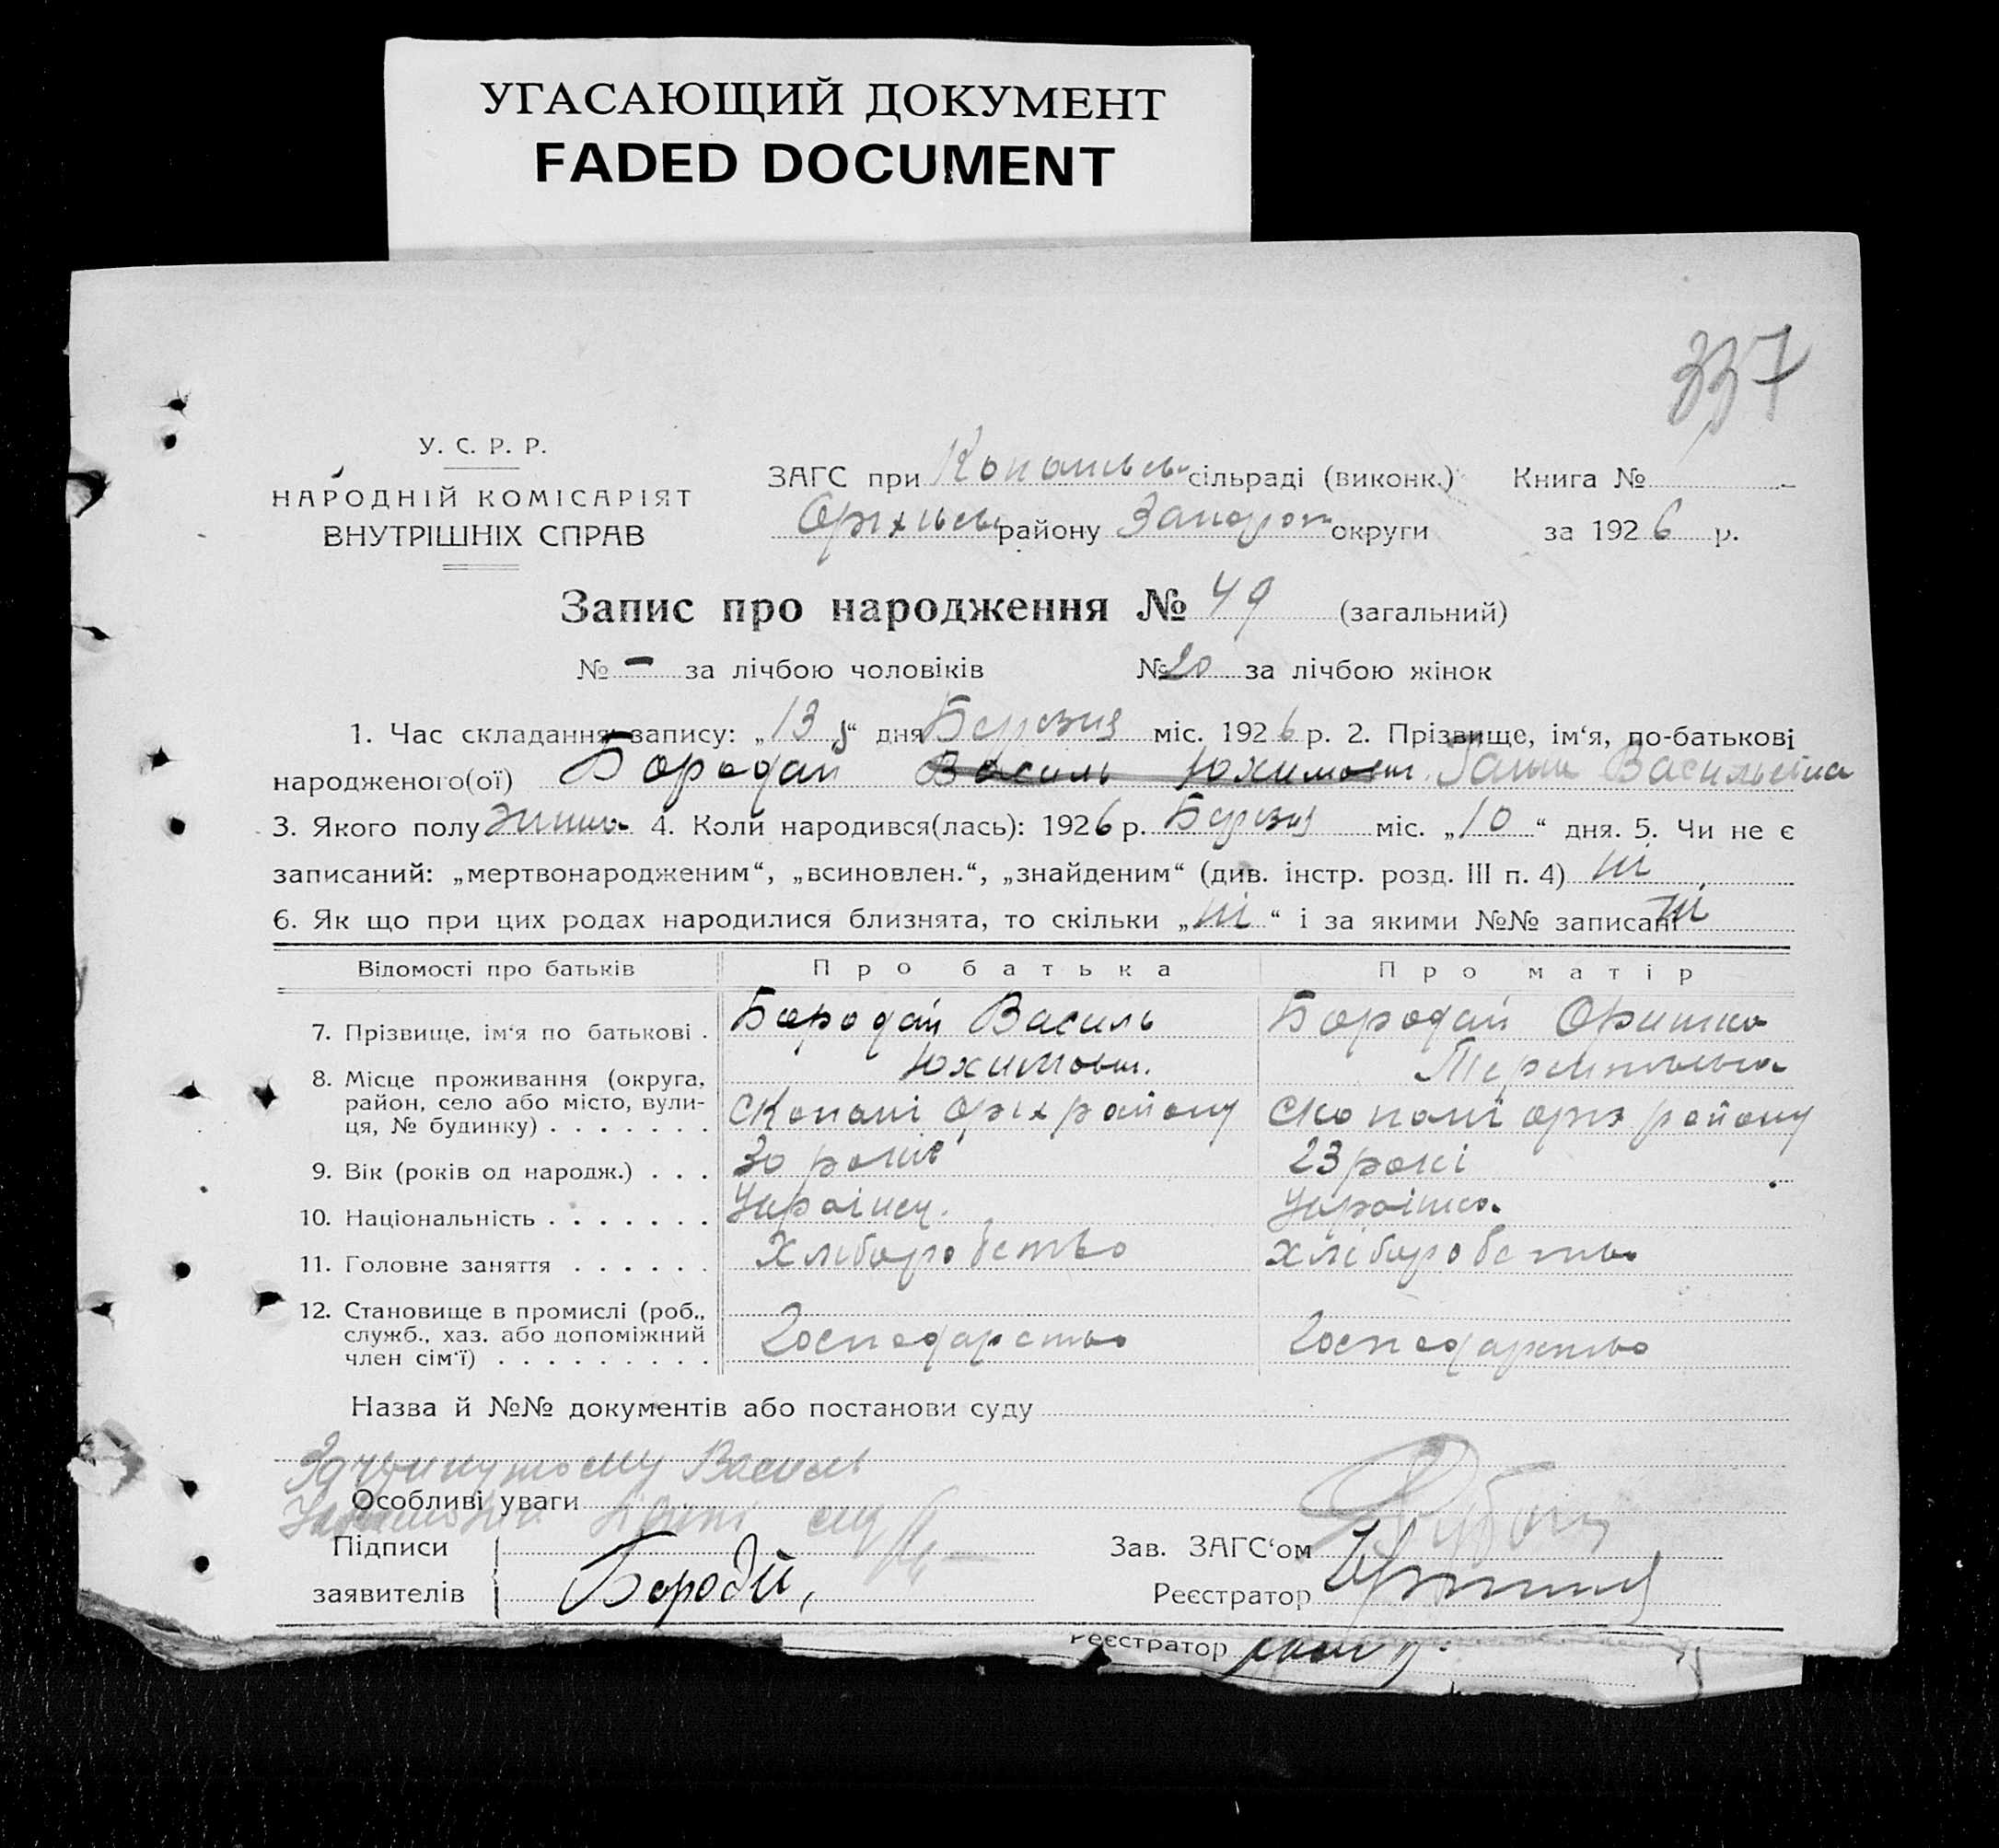 УГАСАЮЩИЙ ДОКУМЕНТ
FADED DOCUMENT
337
У. С. Р. Р.
НАРОДНІЙ КОМІСАРІЯТ
ВНУТРІШНІХ СПРАВ
ЗАГС при Копанськ сільраді (виконк.) Книга №
Оріхівськ району Запоріж округи за 1926 р.
Запис про народження № 49 (загальний)
№ - за лічбою чоловіків № 20 за лічбою жінок
1. Час складання запису: „13“ дня Березня міс. 1926 р. 2. Прізвище, ім‘я, по-батькові
народженого(ої) Бородай Василь Юхимович Ганна Васильевна
3. Якого полу жіноч 4. Коли народився(лась): 1926 р. Березня міс. „10“ дня. 5. Чи не є
записаний: „мертвонародженим“, „всиновлен.“, „знайденим“ (див. інстр. розд. III п. 4) ні
6. Як що при цих родах народилися близнята, то скільки „ні“ і за якими №№ записані ні
Відомості про батьків Про батька Про матір
7. Прізвище, ім‘я по батькові . Бородай Василь Бородай Оришка
Юхимович.
8. Місце проживання (округа, район, село або місто, вулиця, № будинку) . . . . . . . С Копані Оріх району С Копані оріх району
9. Вік (років од народж.) . . . 30 років 23 рокі
10. Національність . . . . . . . Українец. Українка
11. Головне заняття . . . . . . Хліборобство Хліборобство
12. Становище в промислі (роб., служб., хаз. або допоміжний член сім‘ї) . . . . . . . . . Господарство Господарство
Назва й №№ документів або постанови суду
Василь
Особливі уваги
Підписи
заявителів
Бородій,
Зав. ЗАГС‘ом
Реєстратор
Реєстратор